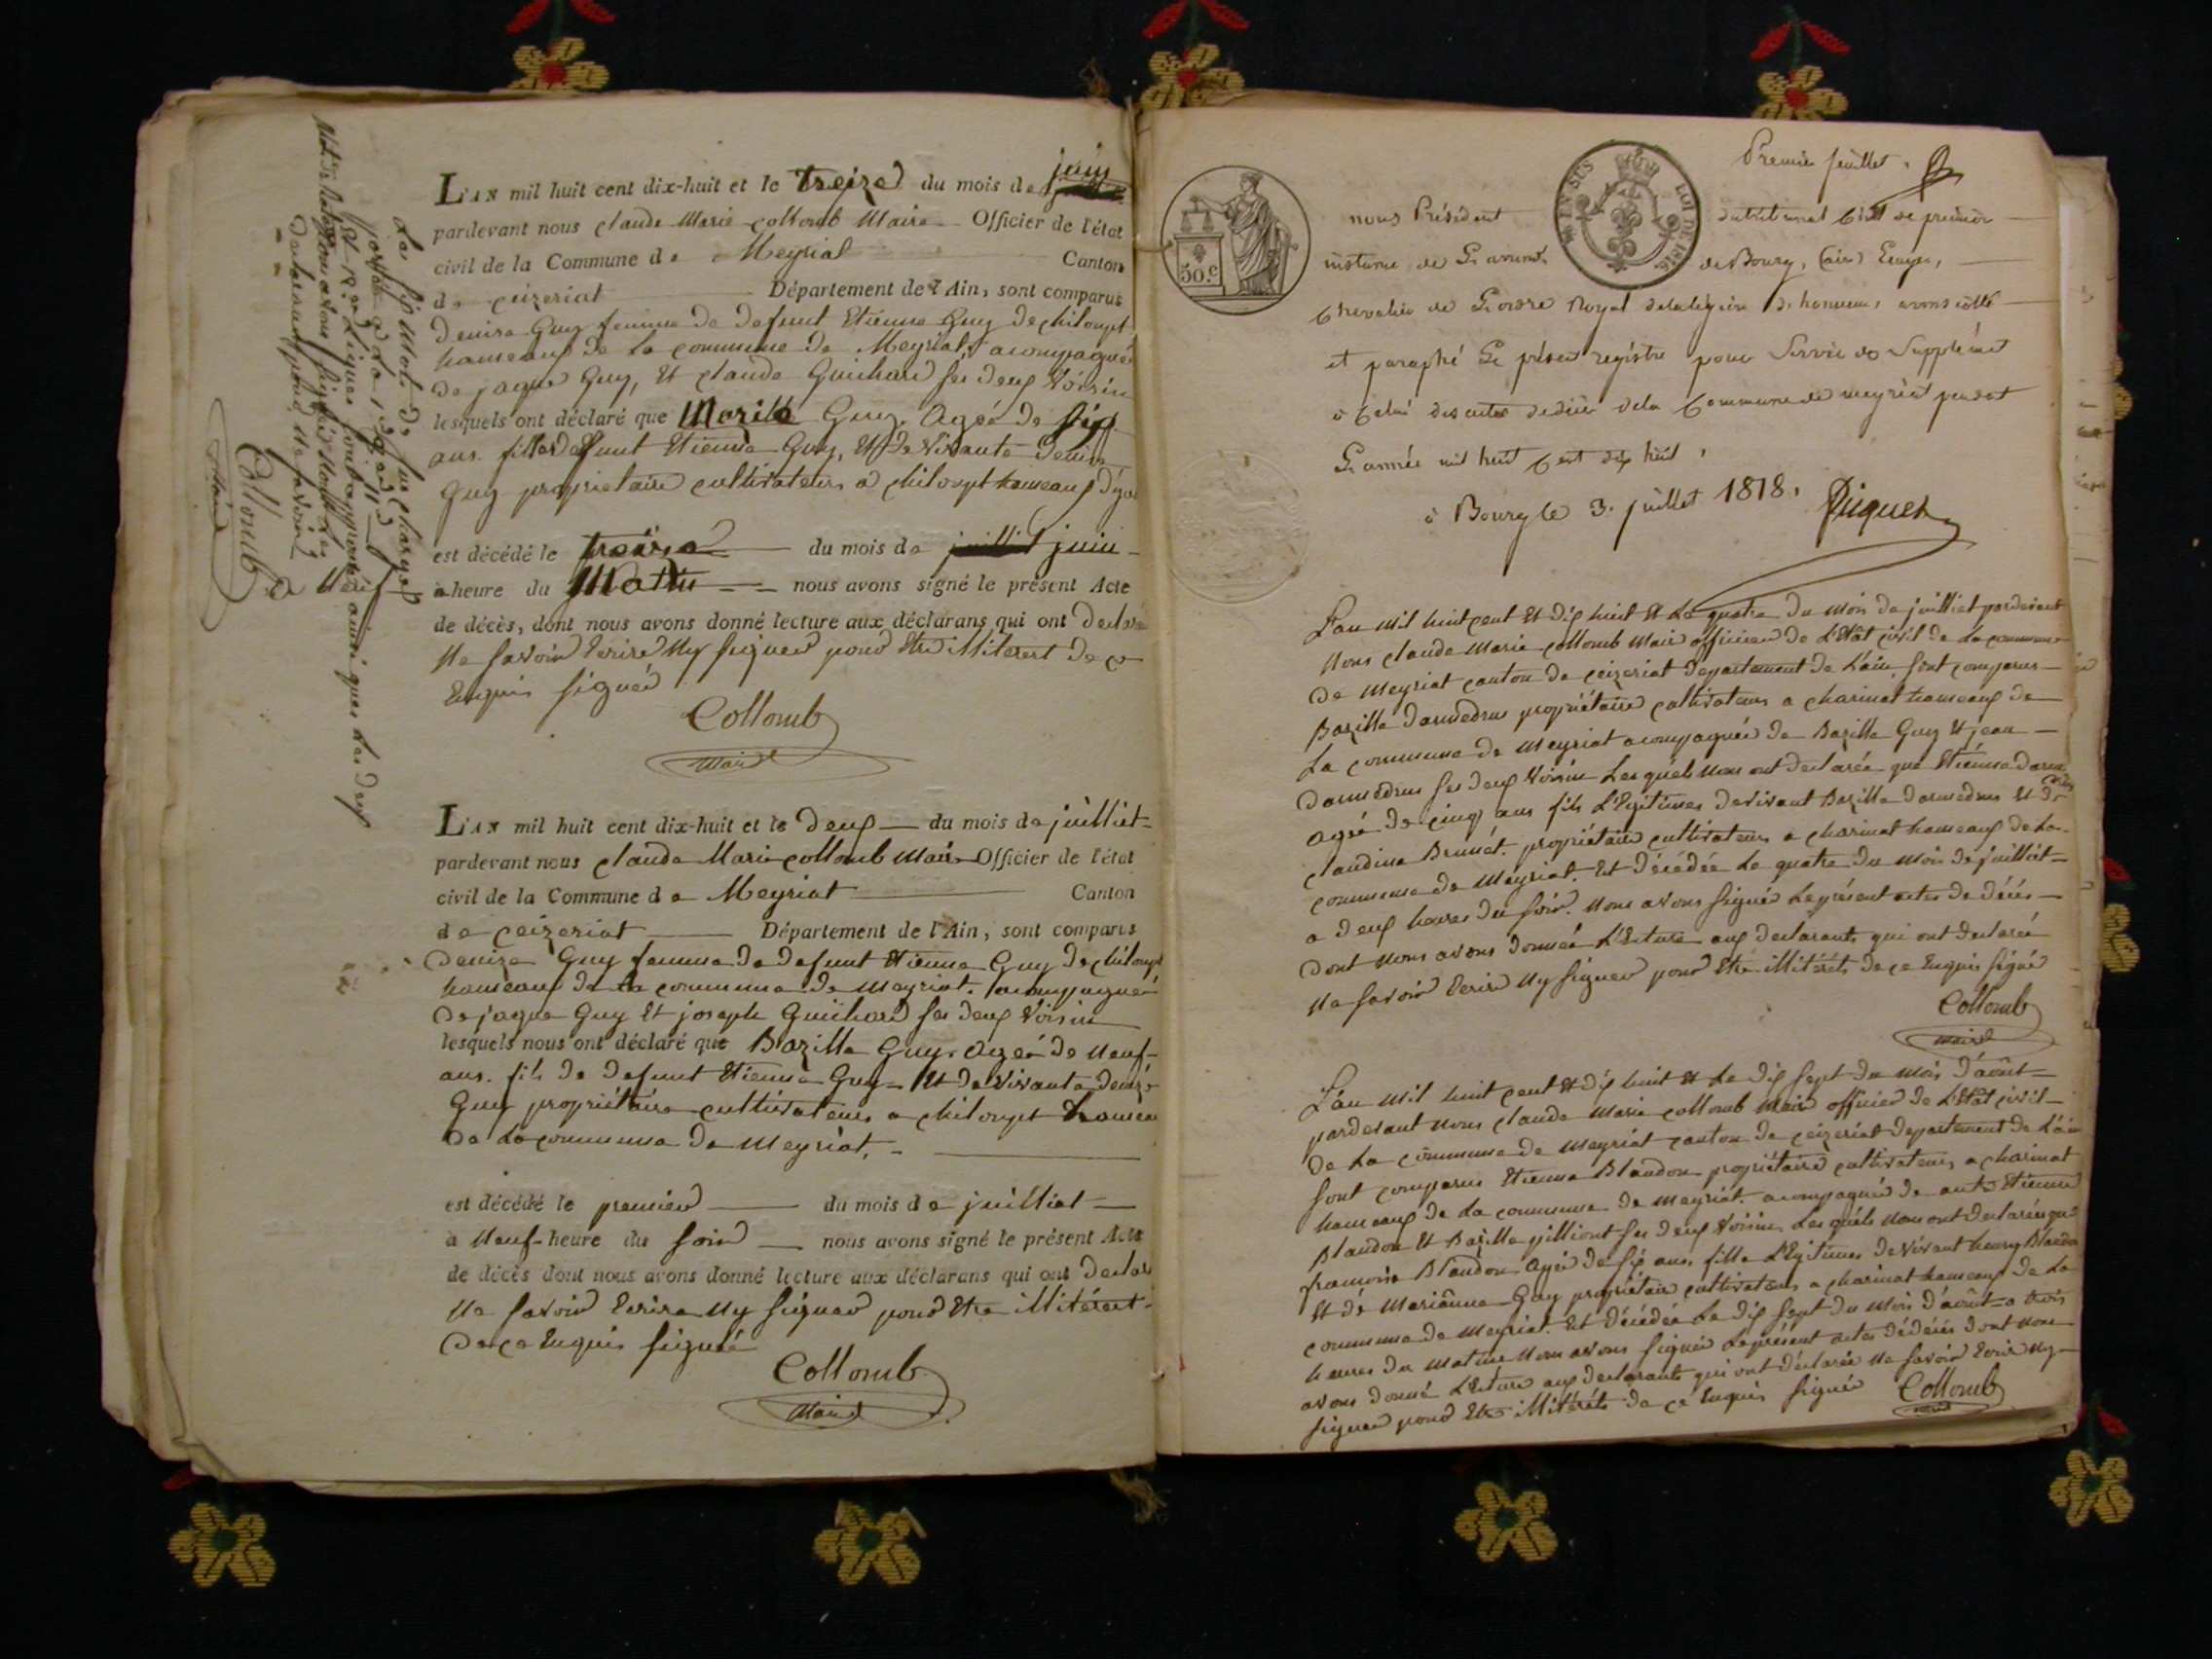 L'an mil huit cent dix-huit et le treize du mois de juin
pardevant nous claude Marie collomb Maire Officier de l'état
civil de la Commune de Meyriat Canton
de ceizeriat Département de l'Ain, sont comparus
Denise Guy femme de defunt Etienne Guy de chiloupt
hameaux de la commune de Meyriat, acompagnée
de jaque Guy, Et claude Guichard ses deux voisin
lesquels ont déclaré que Guy. Agée de six
ans. fille defunt Etienne Guy, Et de Vivante Denise
Guy propriétaire cultivateurs a chiloupt hameaux
est décédé le treize du mois de juin
a heure du Matin nous avons signé le présent Acte
de décès, dont nous avons donné lecture aux déclarans qui ont declaré
Ne savoir Ecrire Ny signer pour Etre illiterert de ce
Enquis signéé
Collomb
Maire
a Neuf
Collomb
Maire
L'an mil huit cent dix-huit et le deux du mois de juilliet
pardevant nous claude Marie collomb Maire Officier de l'état
civil de la Commune de Meyriat Canton
de ceizeriat Département de l'Ain, sont comparus
Denize Guy femme de defunt Etienne Guy de chiloupt
hameaux de la commune de Meyriat. acompagnée
De jaque Guy Et joseph Guichard ses deux Voisin
lesquels nous ont déclaré que Bazille Guy. Agéé de Neuf
ans. fils de defunt Etienne Guy Et de Vivante denize
Guy propriétaire cultivateurs a chiloupt hameau
De La commune de Meyriat,
est décédé le premier du mois de juilliet
a Neuf heure du soir nous avons signé le présent Acte
de décès dont nous avons donné lecture aux déclarans qui ont Declaré
Ne savoir Ecrire Ny signer pour Etre illitérert
De ce Enquis signéé
Collomb
Maire
Premier feuillet.
EN SUS
LOI DE 1816
50.c
nous Président du tribunal Civil de première
instance de L'arrond. de Bourg, (ain) Ecuyer,
Chevalier de L'ordre Royal de la légion d'honneur, avons côté
et paraphé Le présent registre pour Servir de Supplément
à Celui des actes de décès de la Commune de meyriat pendant
L'année mil huit Cent dix huit,
à Bourg le 3. juillet 1818.
L'an Mil huit cent Et dix huit Et Le quatre du Mois de juilliet pardevant
Nous claude Marie collomb Maire officier de L'Etât civil de La commune
de Meyriat canton de ceizeriat département de L'ain, sont comparus
Bazille Darmedrus propriétaire cultivateurs a charinat hameaux de
La commune de Meyriat acompagnée de Bazille Guy Et jean
Darmedrus ses deux Voisin Lesquéls Nous ont declarée que Etienne
Agéé de cinq ans fils L'Egitimes de vivant Bazille Darmedrus Et de
claudine Brunét. propriétaire cultivateurs a charinat hameaux de La
commune de Meyriat. Est Décédée Le quatre du Mois de juilliet
a deux heures du soir. Nous avons signée Le présent actes de Décés
Dont Nous avons Donnéé L'Ecture aux declarants qui ont declarée
Ne savoir Ecrire Ny signer pour Etre illitéréts de ce Enquis signé
Collomb
Maire
L'an Mil huit cent Et dix huit Et Le dix sept du Mois d'août
pardevant Nous claude Marie collomb Maire officier de L'Etât civil
De La commune de Meyriat canton de ceizeriat departement de L'ain
sont comparus Etienne Blandon propriétaire cultivateurs a charinat
hameaux de La commune de Meyriat. acompagnée de autre Etienne
Blandon Et Bazille ses deux Voisins Lesquéls Nous ont declarée que
Blandon Agéé de six ans, fille L'Egitimes de Vivant henry Blandon
Et dé Mariânne Guy propriétaire cultivateurs a charinat hameaux de La
commune de Meyriat. Est Décédée Le dix sept du Mois d'août a trois
heures du matin Nous avons signée Le présent actes dédécés dont Nous
avons donné L'Ecture aux declarants qui ont déclarée Ne savoir Ecrire Ny
signer pour Etre illitéréts de ce Enquis signéé Collomb
Maire